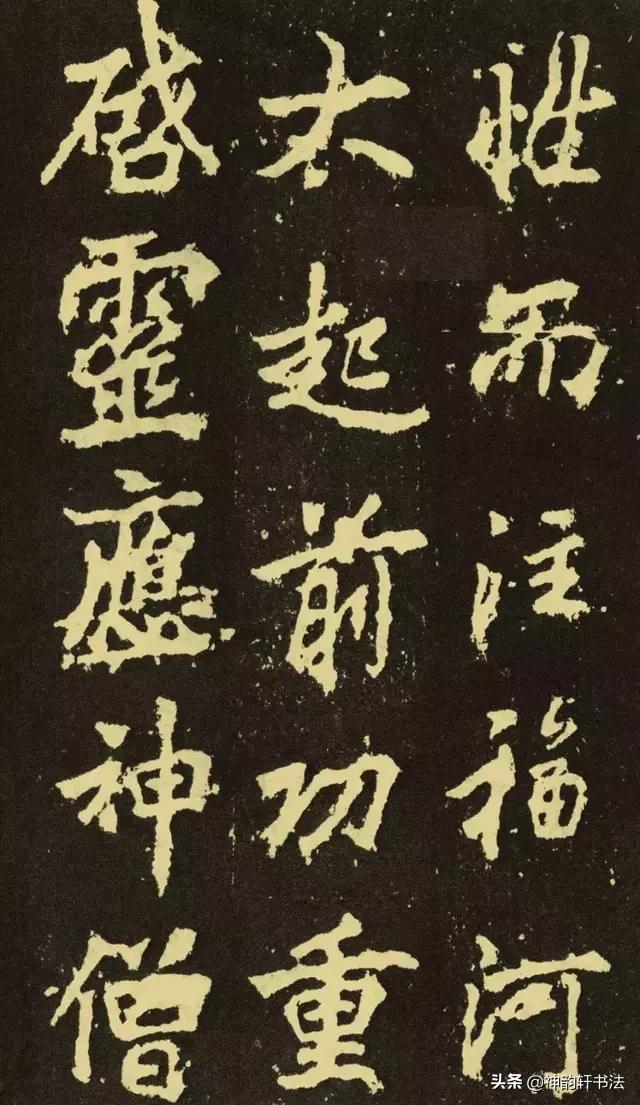 性而注福河
太起前功重
啓靈應神僧
头条 @神韵轩书法